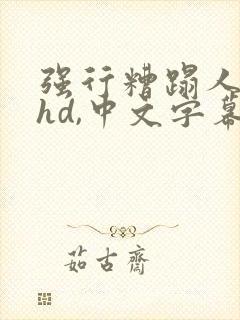 强行糟蹋人
hd,中文字幕
茹古齋